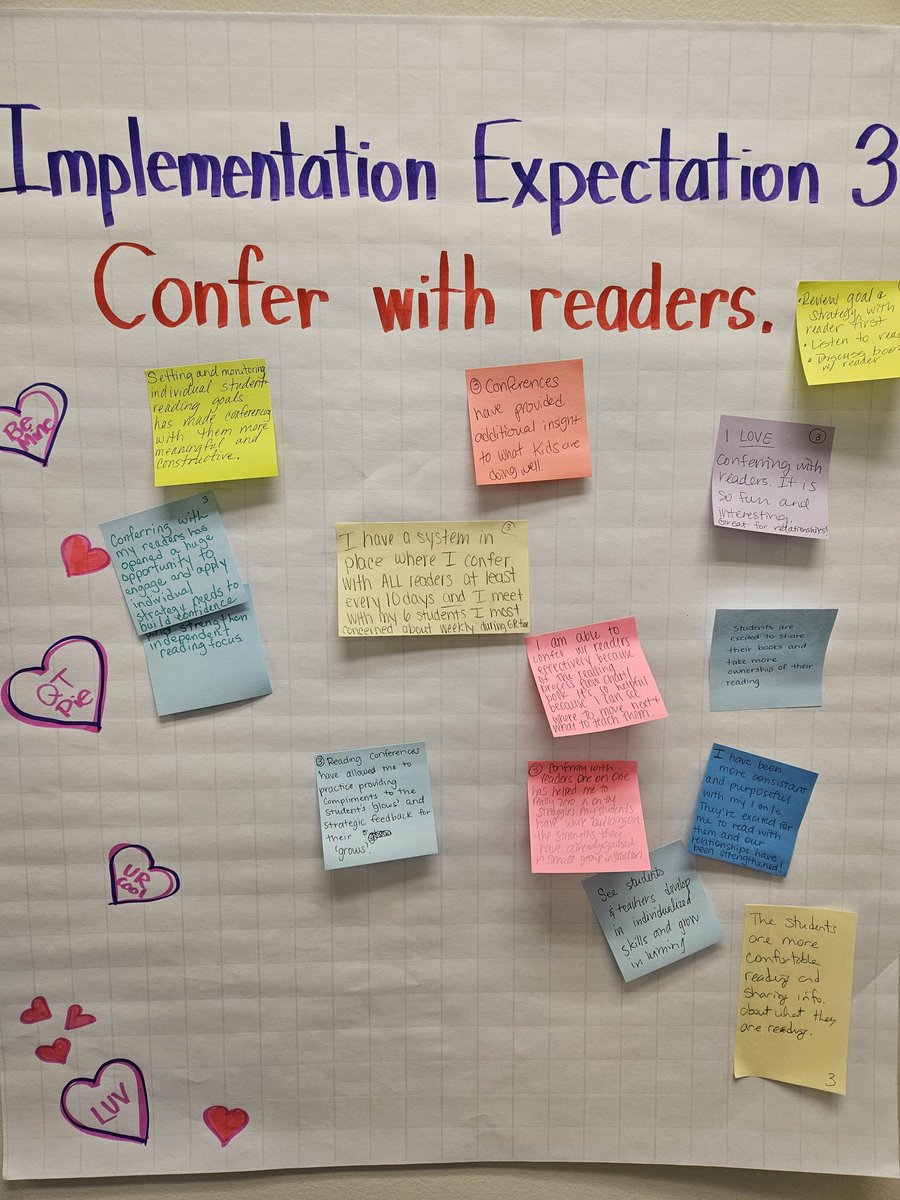 Implementation Expectation 3
Confer with readers.
• Review goal &
strategy with
reader first
• Listen to
• Discuss book
w/ reader
Setting and monitoring
individual student
reading goals
has made conferencing
with them more
meaningful and
constructive.
③ Conferences
have provided
additional insight
to what kids are
doing well.
③
I LOVE
Conferring with
readers. It is
so fun and
interesting.
Great for relationships!
Be
Mine
3
Conferring with
my readers has
opened a huge
opportunity to
engage and apply
individual
strategy needs to
build confidence
and strengthen
independent
reading focus.
③
I have a system in
place where I confer
with ALL readers at least
every 10 days and I meet
with my 6 students I most
concerned about weekly during GR time
I am able to
confer w/ readers
effectively because
of the reading
process flow chart/
book. It's so helpful
because I can see
where to move next &
what to teach them.
Students are
excited to share
their books and
take more
ownership of their
reading
QT
Pie
③ Reading Conferences
have allowed me to
practice providing
compliments to the
student's 'glows' and
strategic feedback for
their
'grows'.
③ Conferring with
readers one on one
has helped me to
really zero in on the
struggles my students
have while building on
the strengths they
have already gained
in small group instruction
I have been
more consistant
and purposeful
with my 1 on 1s.
They're excited for
me to read with
them and our
relationships have
been strengthened!
UR
Cool
See students
& teachers develop
in individualized
skills and grow
in learning
The students
are more
comfortable
reading and
sharing info.
about what they
are reading.
3
LUV